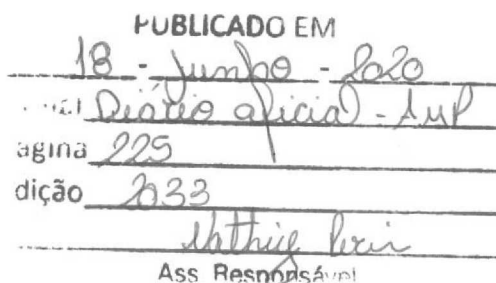 PUBLICADO EM
18 - Junho - 2020
Diário oficial - AMP
agina 225
dição 2033
Ass Responsável